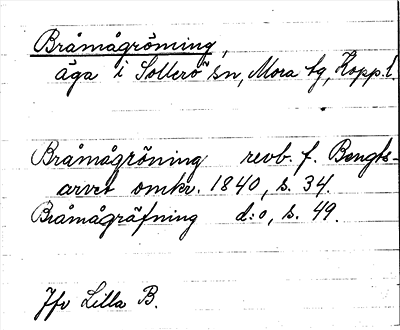 Bråmågröning,
äga i Sollerö sn, Mora tg, Kopp. l.
Bråmågröning revb. f. Bengts-
arvet omkr. 1840, s. 34.
Bråmågräfning d:o, s. 49.
Jfv Lilla B.